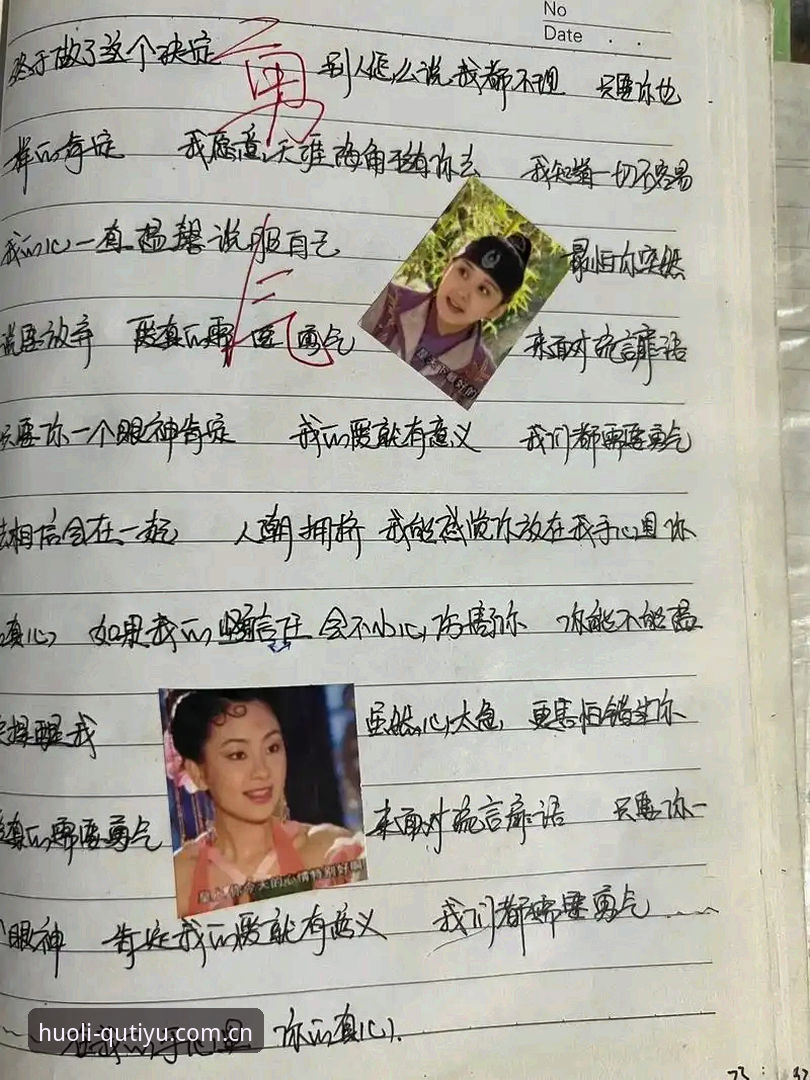 No
Date
勇气
终于做了这个决定 别人怎么说我都不理 只要你也
样的肯定 我愿意天涯海角都有你去 我知道一切不容易
我的心一直温馨说服自己 最怕你突然
说要放弃 爱真的需要勇气 来面对流言蜚语
只要你一个眼神肯定 我的爱就有意义 我们都需要勇气
去相信会在一起 人潮拥挤 我能感觉你放在我手心里 你
真心 如果我的坚强信任 会不小心伤害你 你能不能温
提醒我 虽然心太急 更害怕错过你
爱真的需要勇气 来面对流言蜚语 只要你一
眼神 肯定我的爱就有意义 我们都需要勇气
皇上你今天的心情特别好啊
在我的手心里 你的真心
huoli-qutiyu.com.cn